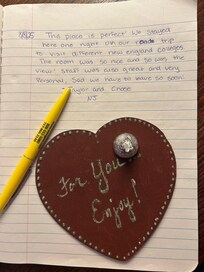 This place is perfect we stayed
here one night on our road trip
to visit different new england colleges
The room was so nice and so was the
view! staff was also great and very
personal. Sad we have to leave so soon!
and Chase
NJ
For You
Enjoy!